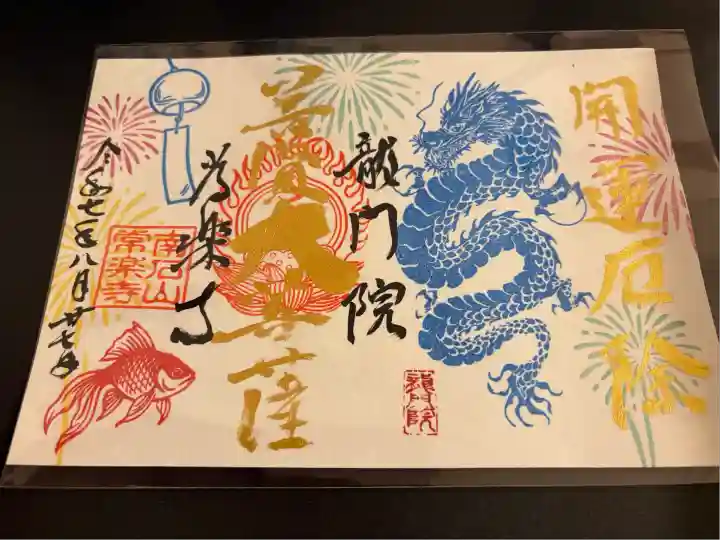 開運厄除
龍門院
普賢大菩薩
常楽寺
令和七年八月廿七日
南石山
常楽寺
龍門院